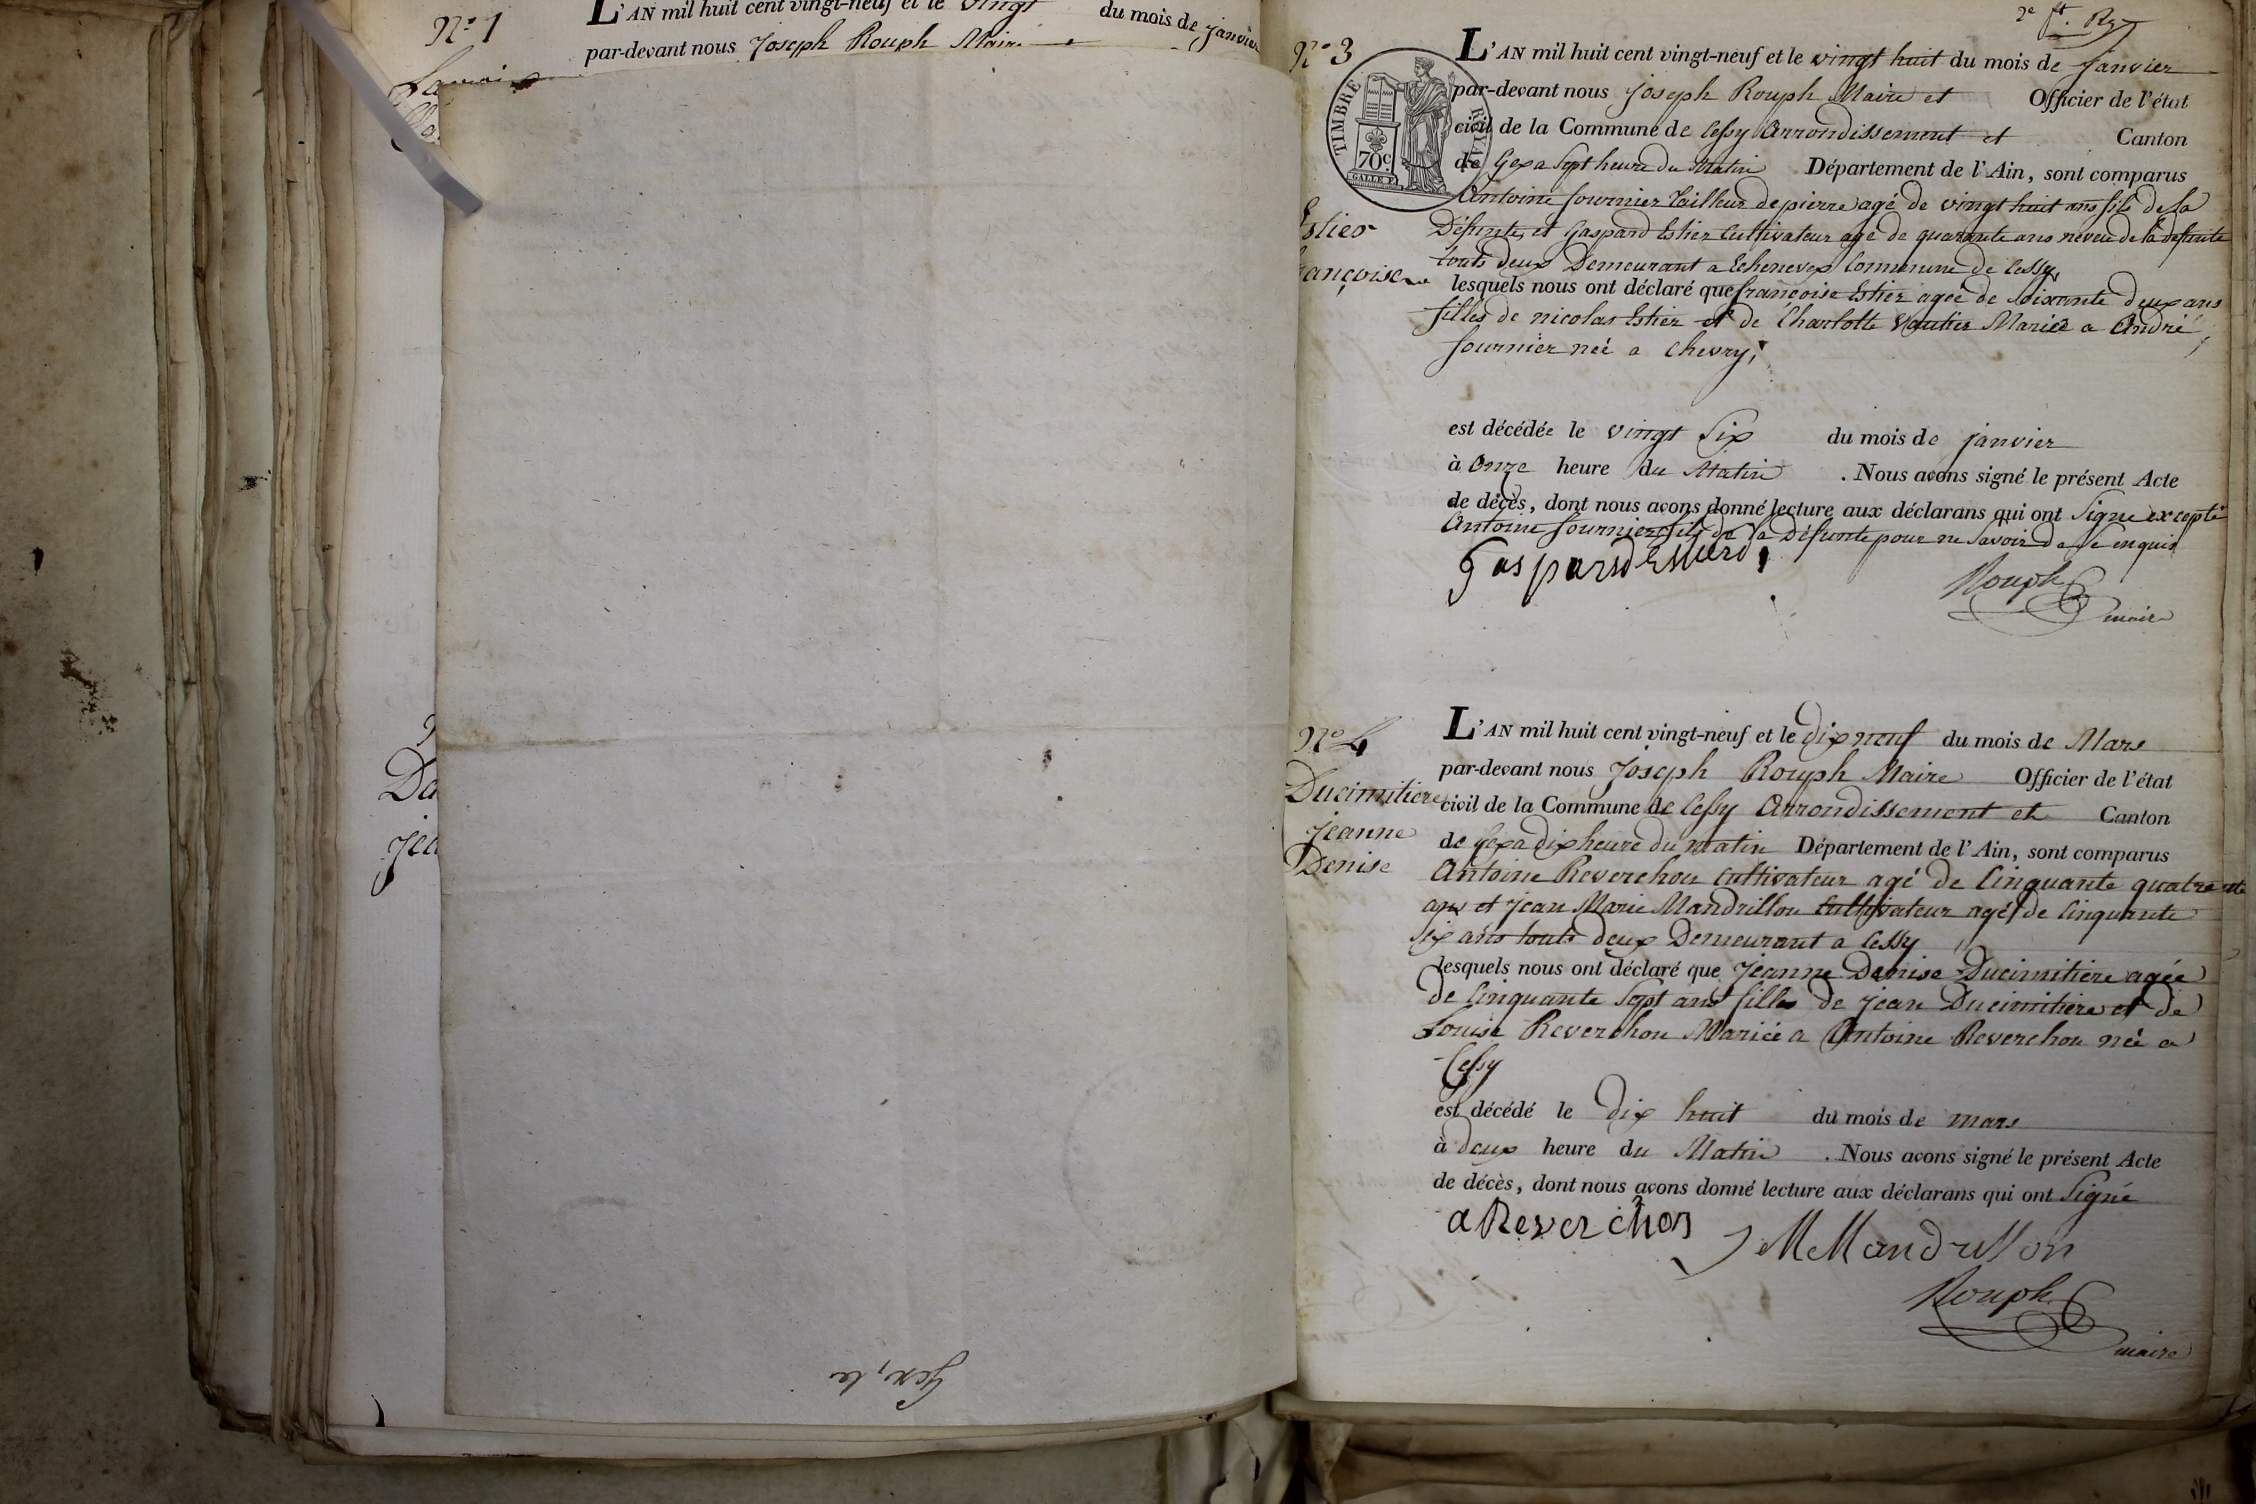 N.o 1
L'AN mil huit cent vingt-neuf et le vingt du mois de janvier
par-devant nous Joseph Rouph Maire
Da
jea
Gex, le
N.o 3
L'AN mil huit cent vingt-neuf et le vingt huit du mois de janvier
par-devant nous Joseph Rouph Maire et Officier de l'état
civil de la Commune de Cessy Arrondissement et Canton
de Gex a Sept heure du Matin Département de l'Ain, sont comparus
TIMBRE ROYAL
70c.
GALLE F.
Estier
ançoise
Antoine fournier Tailleur de pierre agé de vingt huit ans fils de La
Défunte, et Gaspard Estier Cultivateur agé de quarante ans neveu de la defunte
touts deux Demeurant a Echenevex Commune de Cessy,
lesquels nous ont déclaré que françoise Estier agée de Soixante deux ans
filles de nicolas Estier et de Charlotte Vautier Mariée a André
fournier neé a Chevry,
est décédée le vingt Six du mois de janvier
à Onze heure du Matin . Nous avons signé le présent Acte
de décès, dont nous avons donné lecture aux déclarans qui ont Signe excepté
Antoine fournier fils de la Défunte pour ne Savoir de ce enquis
Rouph
maire
N.o 4
Ducimitiere
Jeanne
Denise
L'AN mil huit cent vingt-neuf et le Dix neuf du mois de Mars
par-devant nous Joseph Rouph Maire Officier de l'état
civil de la Commune de Cessy Arrondissement et Canton
de Gex a Dix heure du matin Département de l'Ain, sont comparus
Antoine Reverchon Cultivateur agé de Cinquante quatre
ans et Jean Marie Mandrillon Cultivateur agé de Cinquante
Six ans touts deux Demeurant a Cessy
lesquels nous ont déclaré que Jeanne Denise Ducimitiere agée
de Cinquante Sept ans filles de Jean Ducimitiere et de
Louise Reverchon Mariée a Antoine Reverchon neé a
Cessy
est décédé le Dix huit du mois de mars
à Deux heure du Matin . Nous avons signé le présent Acte
de décès, dont nous avons donné lecture aux déclarans qui ont Signé
a Reverchon
J M Mandrillon
Rouph
maire